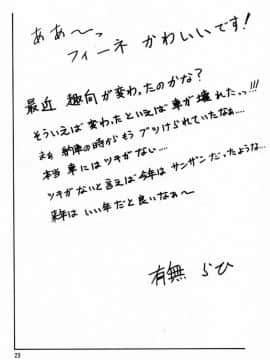 ああ〜っ
フィーネ かわいいです!
最近 趣向が変わったのかな?
そういえば変わったといえば車が壊れたっっ!!!
さぁ 納車の時からもう ブツけられていたなぁ…
本当 車にはツキがない…
ツキがないと言えば今年は サンザンだったような…
来年は いい年だと良いなぁ〜
有無 らひ
23